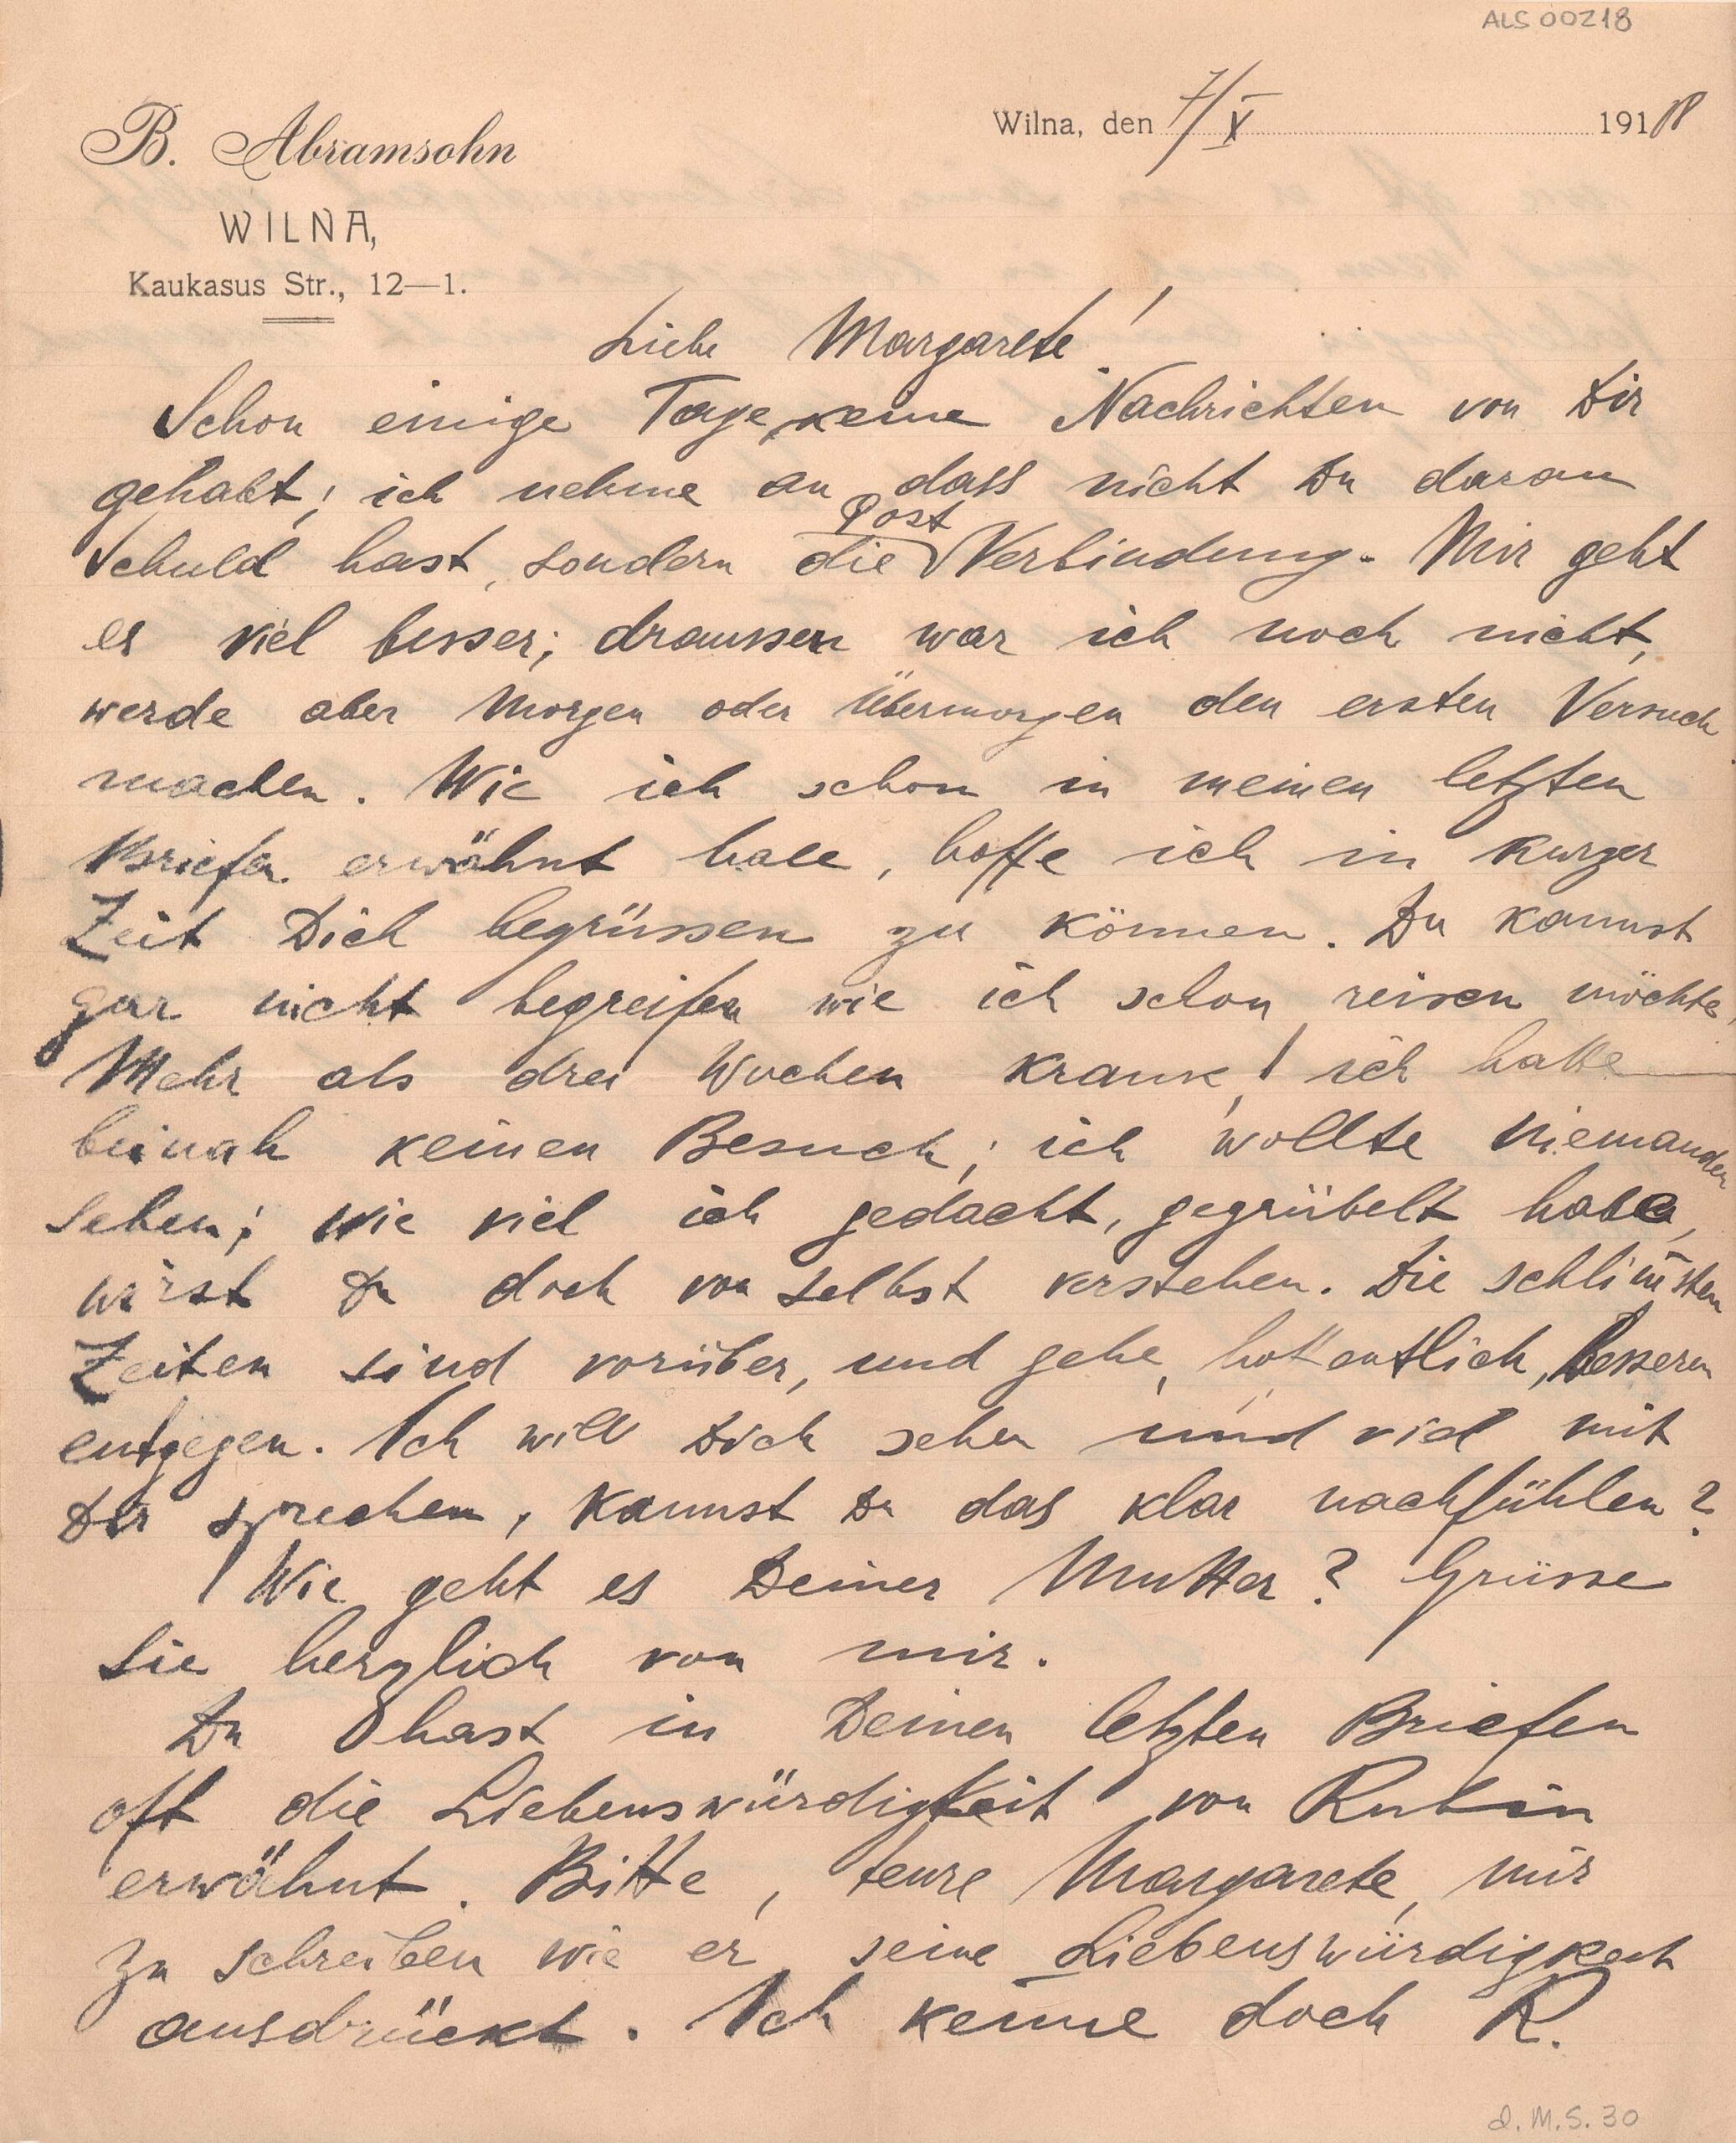 ALS 00218
Wilna, den 7/X 1918
B. Abramsohn
WILNA,
Kaukasus Str., 12—1.
Liebe Margarete!
Schon einige Tage keine Nachrichten von Dir
gehabt; ich nehme an dass nicht Du daran
Schuld hast, sondern die Post Verbindung. Mir geht
es viel besser; draussen war ich noch nicht,
werde aber Morgen oder Übermorgen den ersten Versuch
machen. Wie ich schon in meinen letzten
Briefen erwähnt habe, hoffe ich in kurzer
Zeit Dich begrüssen zu können. Du kannst
gar nicht begreifen wie ich schon reisen möchte,
Mehr als drei Wochen krank! ich hatte
beinah keinen Besuch; ich wollte Niemanden
sehen; wie viel ich gedacht, gegrübelt habe,
wirst Du doch von selbst verstehen. Die schlim̄sten
Zeiten sind vorüber, und gehe, hoffentlich, besseren
entgegen. Ich will Dich sehen und viel mit
Dir sprechen, kannst Du das klar nachfühlen?
Wie geht es Deiner Mutter? Grüsse
Sie herzlich von mir.
Du hast in Deinen letzten Briefen
oft die Liebenswürdigkeit von Rubin
erwähnt. Bitte, teure Margarete, mir
zu schreiben wie er seine Liebenswürdigkeit
ausdrückt. Ich kenne doch R.
d. M. S. 30